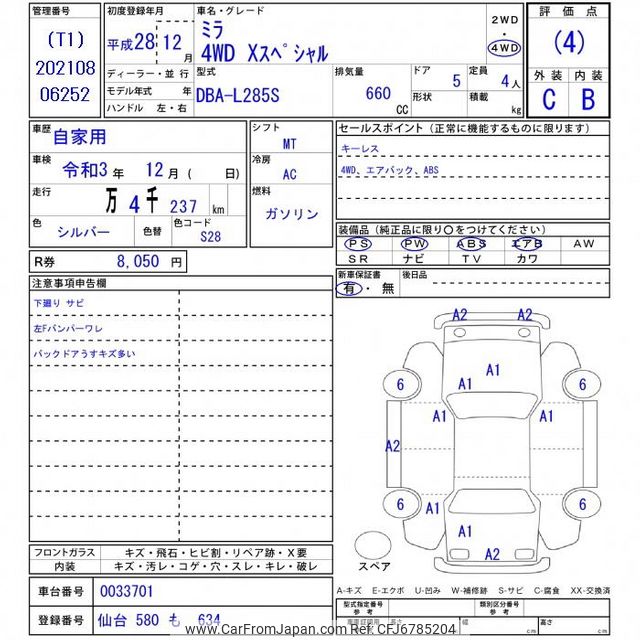 管理番号
(T1)
202108
06252
初度登録年月
平成28 12月
ディーラー・並行
モデル年式 年
ハンドル 左・右
車名・グレード
ミラ
4WD Xスペシャル
2WD
・
4WD
型式
DBA-L285S
排気量
660
CC
ドア 5
形状
定員 4人
積載 kg
評価点
(4)
外装 内装
C B
車歴 自家用
車検 令和3年 12月 ( 日)
走行 万 4千 237 km
色 シルバー
色替
色コード S28
シフト
MT
冷房
AC
燃料
ガソリン
セールスポイント (正常に機能するものに限ります)
キーレス
4WD、エアバック、ABS
装備品 (純正品に限り〇をつけてください)
PS PW ABS エアB AW
SR ナビ TV カワ
R券 8,050 円
新車保証書
有・無
後日品
注意事項申告欄
下廻り サビ
左Fバンパーワレ
バックドアうすキズ多い
A2 A2
A1
A1
6 6
A1 A1
A2
6 6
A1
A1
A2
スペア
フロントガラス キズ・飛石・ヒビ割・リペア跡・X要
内装 キズ・汚レ・コゲ・穴・スレ・キレ・破レ
A-キズ E-エクボ U-凹み W-補修跡 S-サビ C-腐食 XX-交換済
車台番号 0033701
登録番号 仙台 580 も 634
型式指定番号
類別区分番号
車両寸法
長さ cm
幅 cm
高さ cm
www.CarFromJapan.com Ref. CFJ6785204